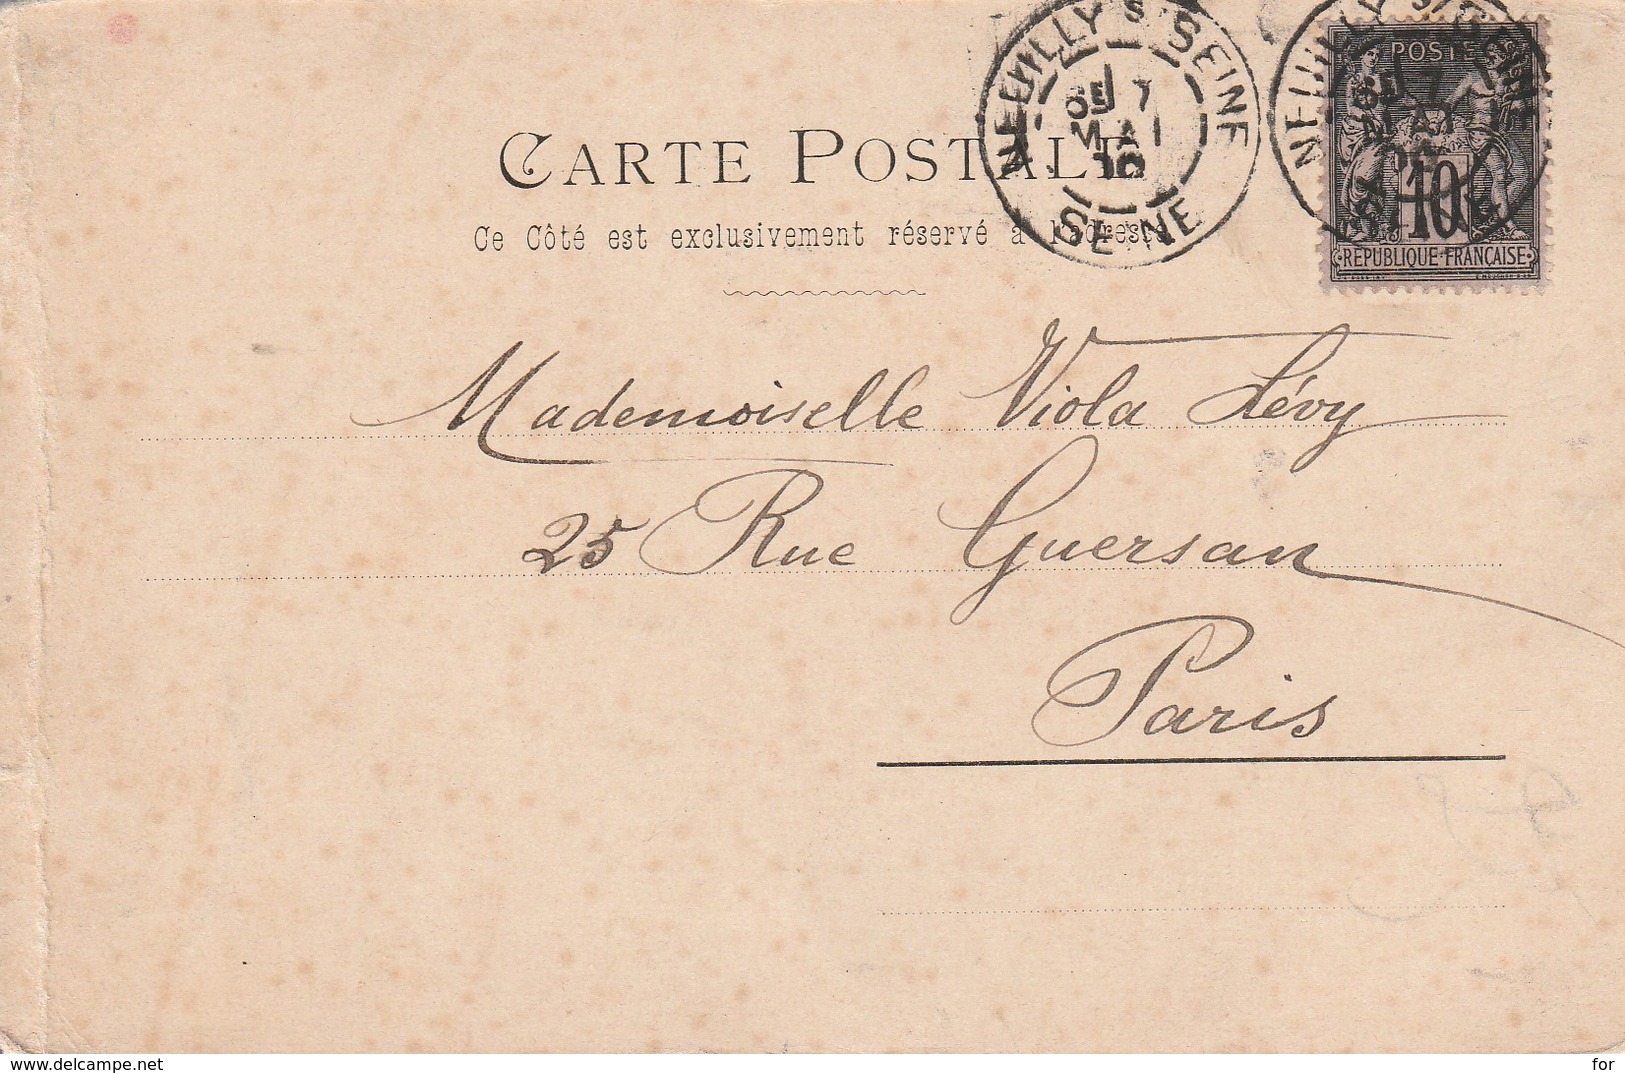 NEUILLY S SEINE
SEINE
7
MAI
POSTE
10
REPUBLIQUE FRANÇAISE
CARTE POSTALE
Ce Côté est exclusivement réservé à l'adresse
Mademoiselle Viola Lévy
25 Rue Guersan
Paris
www.delcampe.net
for